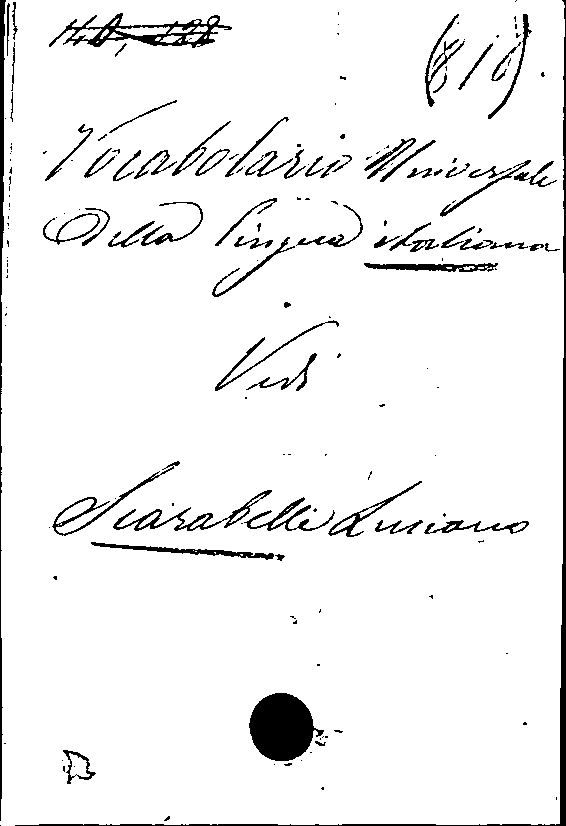 140, 128
(810)
Vocabolario Universale
Della Lingua italiana
Vedi
Scarabelli Luciano